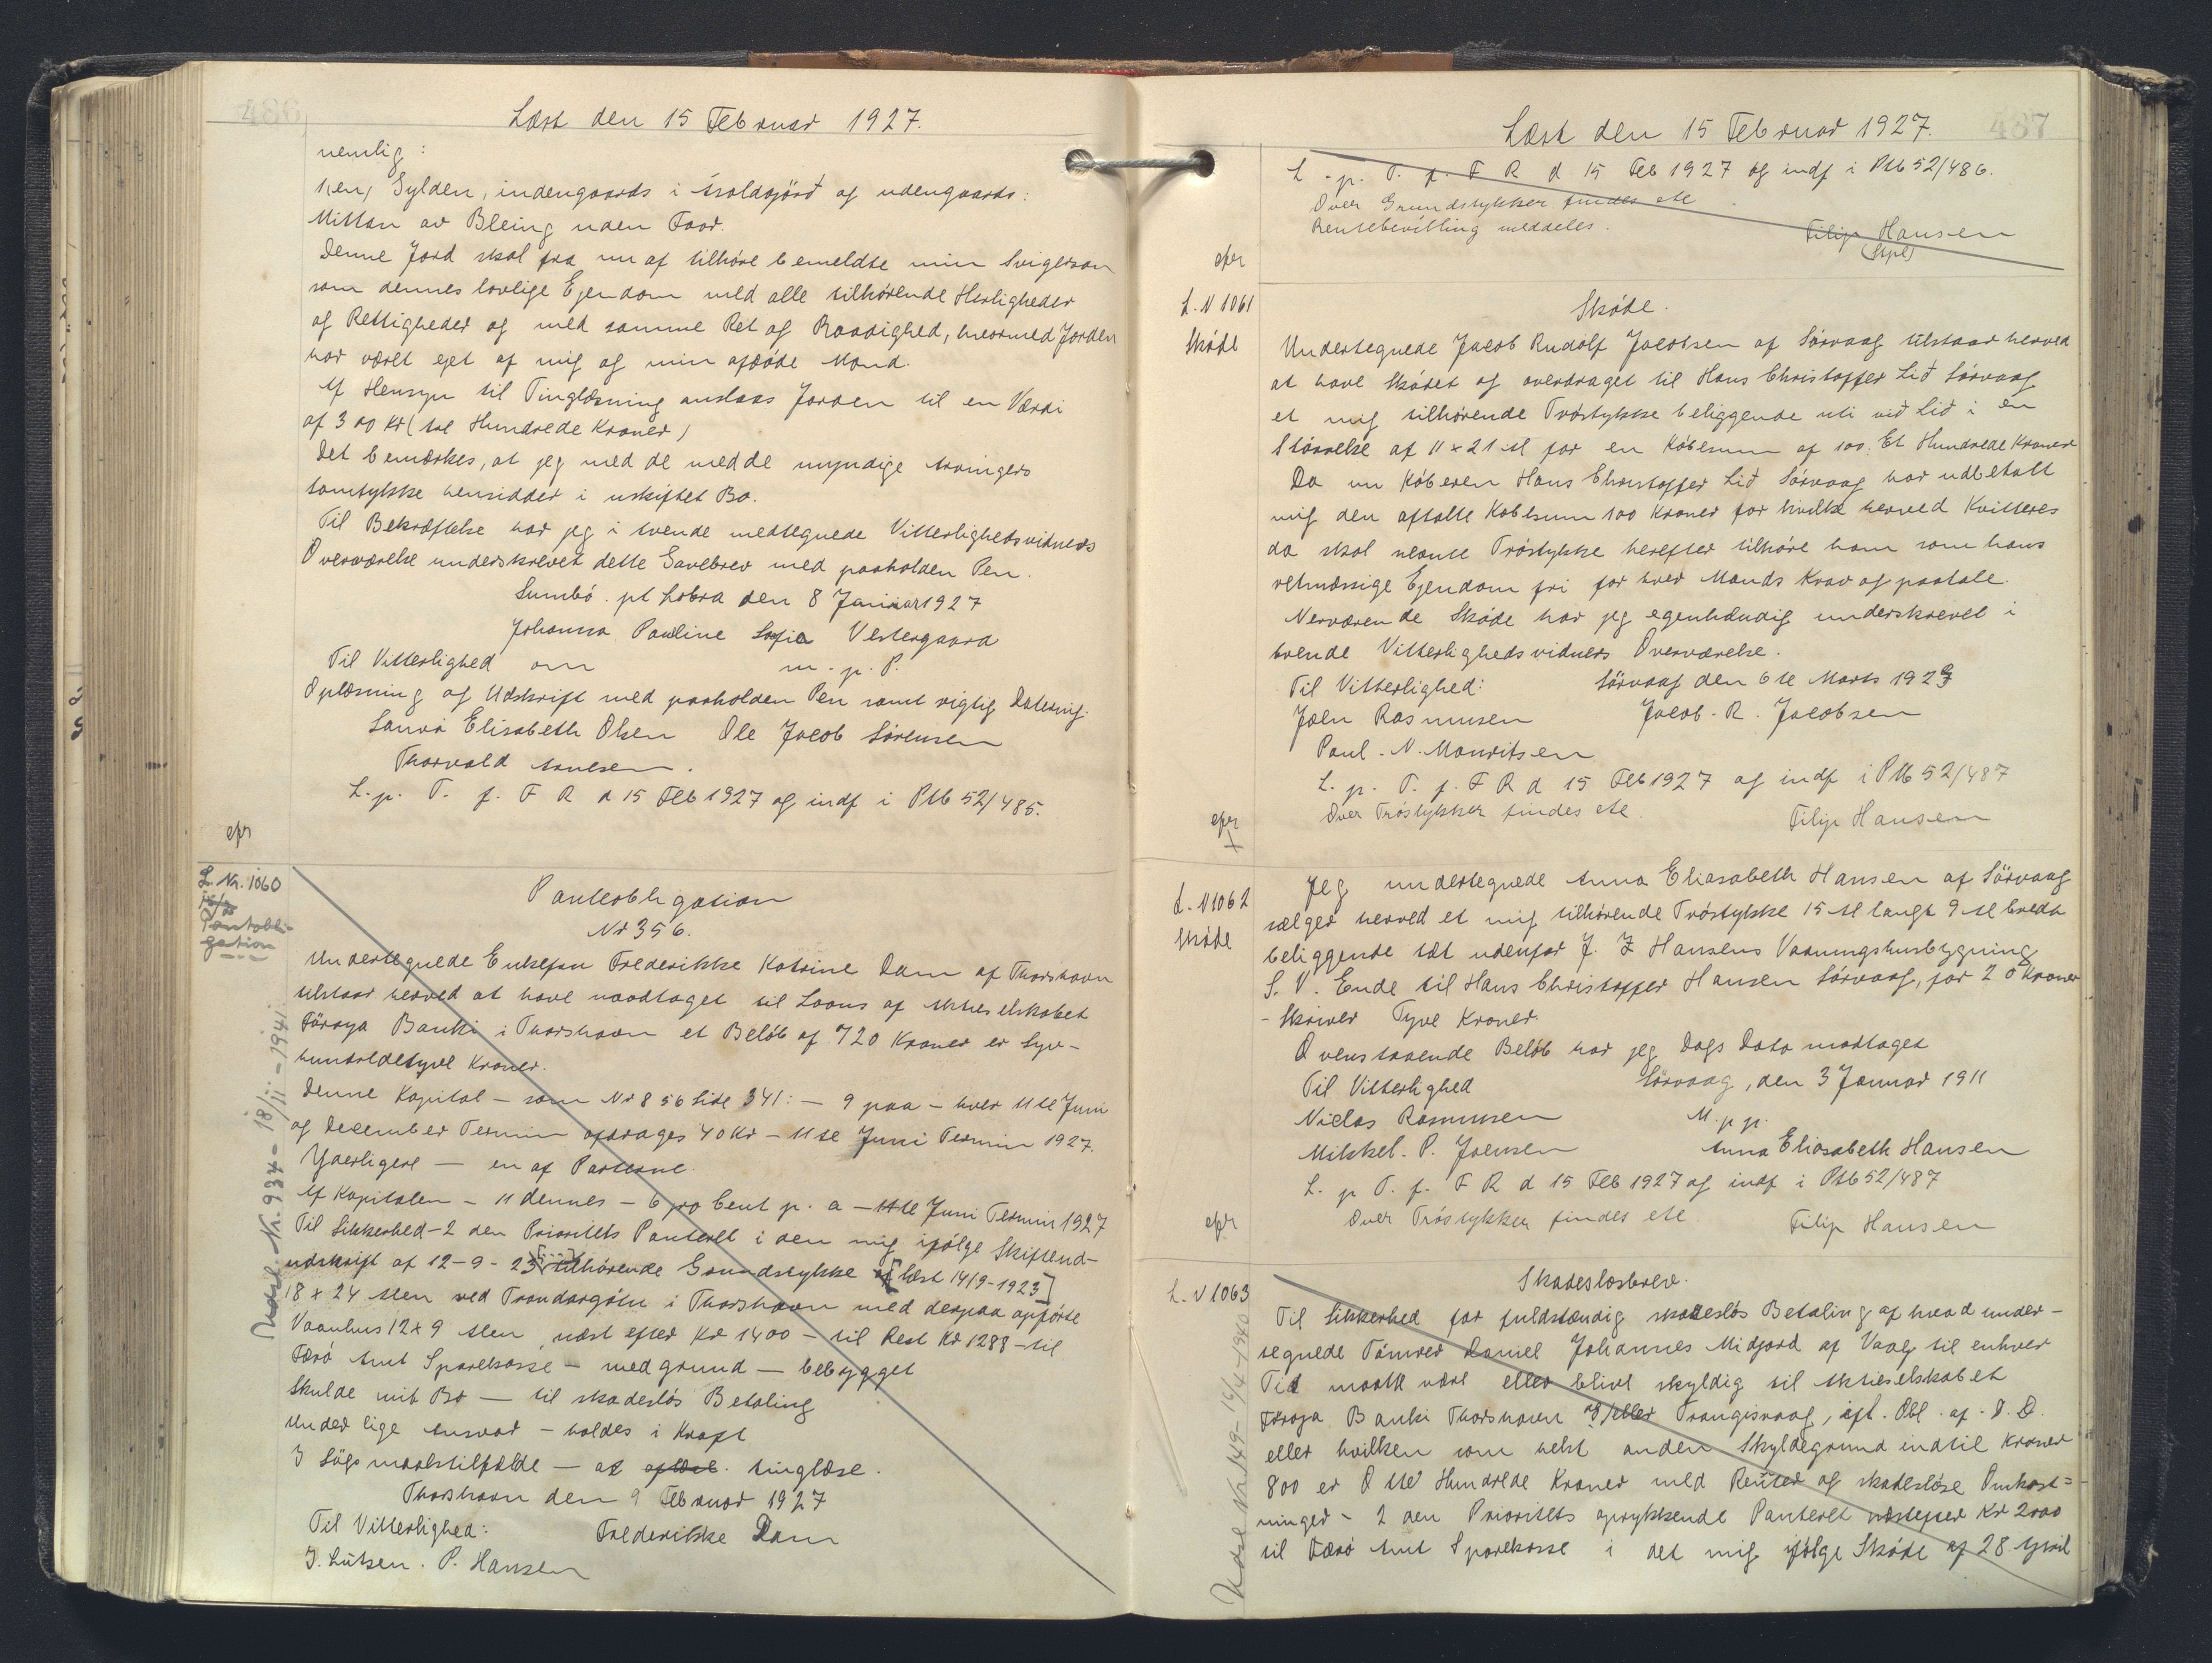 486
Læst den 15 Februar 1927.
nemlig:
Gylden, indengaards i og udengaards:
Mittan av Bleing uden Faar.
Denne Jord skal fra nu af tilhøre bemeldte min Svigersøn
som dennes lovlige Ejendom med alle tilhørende Herligheder
og Rettigheder og med samme Ret og Raadighed, hvormed Jorden
har været ejet af mig og min afdøde Mand.
Af Hensyn til Tinglæsning anslaas Jorden til en Værdi
af 300 Kr (tre Hundrede Kroner)
Det bemærkes, at jeg med de med de myndige Arvingers
Samtykke hensidder i uskiftet Bo.
Til Bekræftelse har jeg i tvende medtegnede Vitterlighedsvidners
Overværelse underskrevet dette Gavebrev med paaholden Pen.
Sumbø. pt Lobra den 8 Januar 1927
Johanna Pauline Sofia Vestergaard
Til Vitterlighed om m. p. P.
Oplæsning og Udskrift med paaholden Pen samt rigtig Datering.
Elisabeth Olsen Ole Jacob Sørensen
Thorvald
L. p. T. f. F R d 15 Feb 1927 og indf i Ptb 52/485.
epr
L. Nr. 1060
Pantobli-
gation
Panteobligation
Nr 356.
Undertegnede Enkefru Frederikke Katrine Dam af Thorshavn
tilstaar herved at have modtaget til Laans af Aktieselskabet
Føroya Banki i Thorshavn et Beløb af 720 Kroner er Syv-
hundredetyve Kroner.
Denne Kapital – som Nr 856 Side 341: – 9 paa – hver 11te Juni
og December Termin afdrages 40 Kr – 11te Juni Termin 1927.
Yderligere – en af Parterne.
Af Kapitalen – 11 dennes – 6 pro Cent p. a – 11te Juni Termin 1927
Til Sikkerhed – 2 den Prioritets Panteret i den mig ifølge Skifteud-
udskrift af 12-9-23 tilhørende Grundstykke af [læst 14/9-1923]
18 x 24 Alen ved Trondargøtu i Thorshavn med derpaa opførte
Vaanhus 12 x 9 Alen, næst efter Kr 1400 – til Rest Kr 1288 – til
Færø Amt Sparekasse – med grund – bebygget
Skulde mit Bo – til skadesløs Betaling
Under lige Ansvar – holdes i Kraft
I Søgsmaalstilfælde – at tinglæse.
Thorshavn den 9 Februar 1927
Til Vitterlighed: Frederikke Dam
J. Lützen. P. Hansen
Udsl. Nr. 934 – 18/11 – 1941
487
Læst den 15 Februar 1927.
L. p. T. f. F R d 15 Feb 1927 og indf i Ptb 52/486.
Over Grundstykker findes ete
Rentebevilling meddeles.
Filip Hansen
epr
L. N 1061
Skøde
Skøde.
Undertegnede Jacob Rudolf Jacobsen af Sørvaag tilstaar herved
at have Skødet og overdraget til Hans Christoffer Lið Sørvaag
et mig tilhørende Trøstykke beliggende uti við Lið i en
Størrelse af 11 x 21 Al for en Købesum af 100. Et Hundrede Kroner
Da nu Køberen Hans Christoffer Lið Sørvaag har udbetalt
mig den aftalte Købesum 100 Kroner for hvilke herved Kvitteres
da skal nævnte Trøstykke herefter tilhøre ham som hans
retmæssige Ejendom fri for hver Mands Krav og paatale.
Nerværende Skøde har jeg egenhændig underskrevet i
tvende Vitterlighedsvidners Overværelse.
Til Vitterlighed: Sørvaag den 6te Marts 192
Joen Rasmussen Jacob. R. Jacobsen
Poul. N. Mouritsen
L. p. T. f. F R d 15 Feb 1927 og indf i Ptb 52/487
Over Trøstykker findes ete. Filip Hansen
epr
L. N 1062
Skøde
Jeg undertegnede Anna Eliasabeth Hansen af Sørvaag
sælger herved et mig tilhørende Trøstykke 15 Al langt 9 Al bredt
beliggende tæt udenfor J. Z Hansens Vaaningshusbygning
S. V. Ende til Hans Christoffer Hansen Sørvaag, for 20 Kroner
- skriver Tyve Kroner.
Ovenstaaende Beløb har jeg Dags Dato modtaget
Til Vitterlighed Sørvaag, den 3 Januar 1911
Niclas Rasmussen M. p. p.
Mikkel. P. Joensen Anna Eliasabeth Hansen
L. p T. f. F R d 15 Feb 1927 og indf i Ptb 52/487
Over Trøstykker findes ete. Filip Hansen
epr
L. N 1063
Skadesløsbrev.
Til Sikkerhed for fuldstændig skadesløs Betaling af hvad under-
tegnede Tømrer Daniel Johannes Midjord af Vaag til enhver
Tid maatte være eller blive skyldig til Aktieselskabet
Føroya Banki Thorshavn og/eller Trangisvaag, ifl. Obl. af. D. D.
eller hvilken som helst anden Skyldegrund indtil Kroner
800 er Otte Hundrede Kroner med Renter og skadesløse Omkost=
ninger – 2 den Prioritets oprykkende Panteret næstefter Kr 2000
til Færø Amt Sparekasse i det mig ifølge Skøde af 28 April
Udsl. Nr. 149 – 16/4-1940